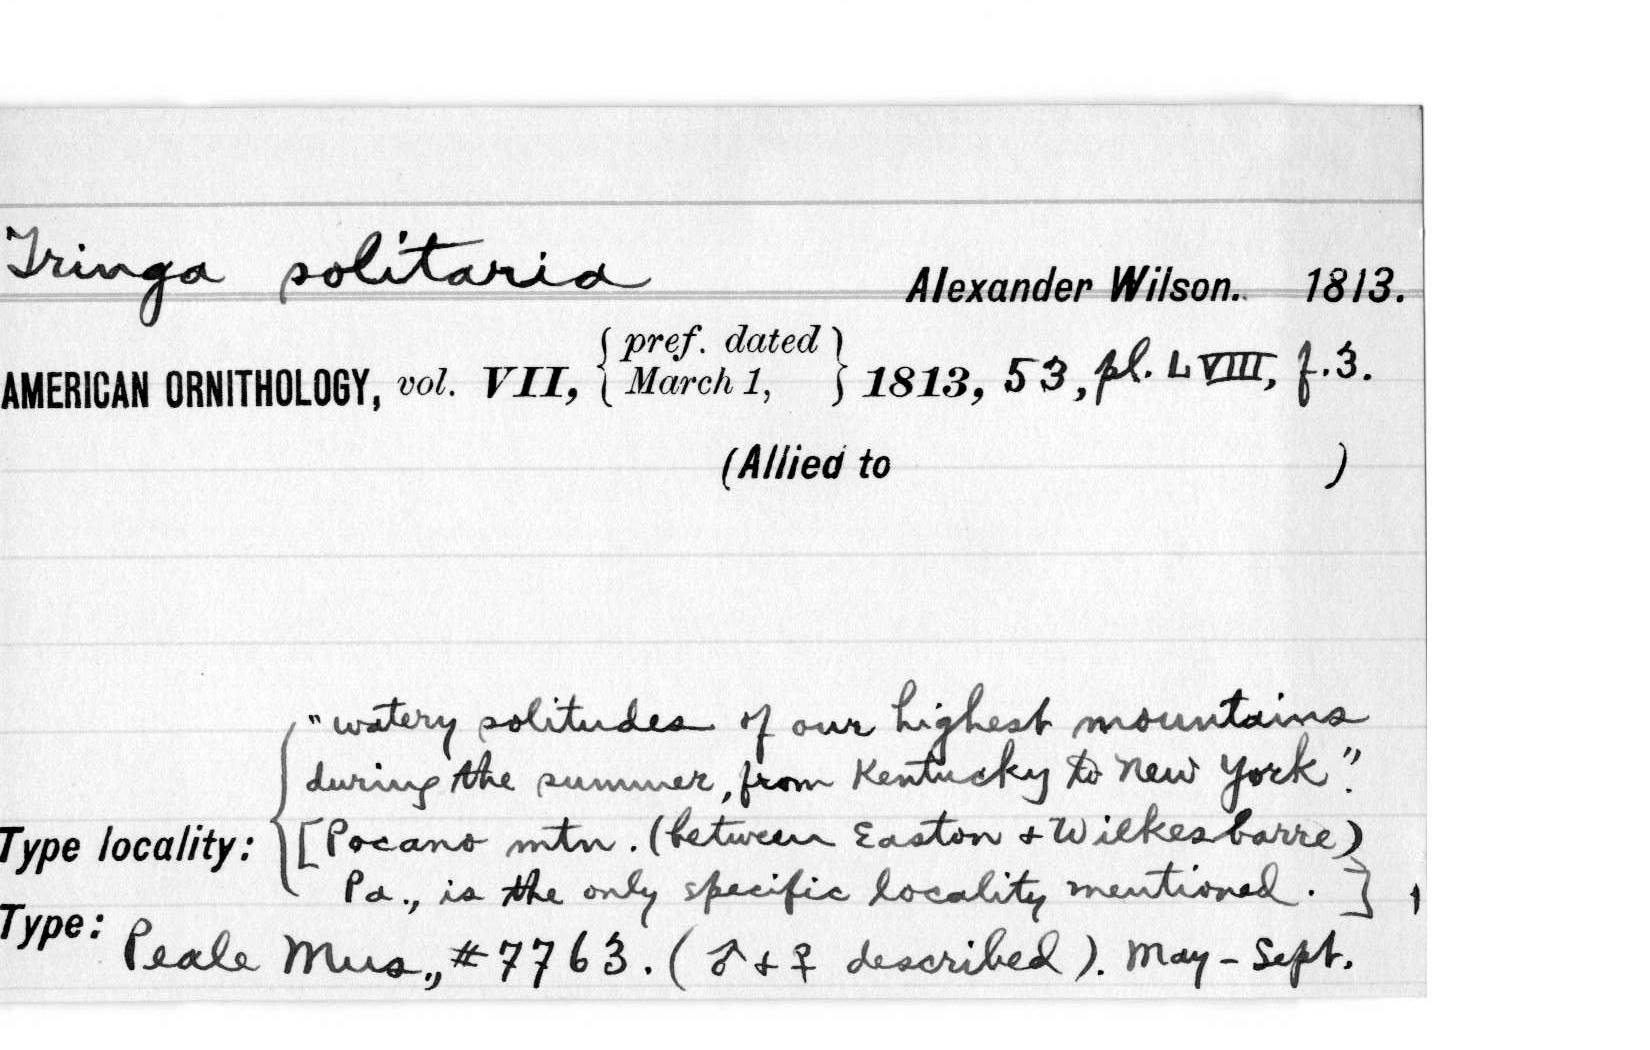 Tringa solitaria Alexander Wilson. 1813.
AMERICAN ORNITHOLOGY, vol. VII, { pref. dated March 1, } 1813, 53, pl. LVIII, f.3.
(Allied to )
"watery solitudes of our highest mountains
during the summer, from Kentucky to New York".
Type locality: [Pocano mtn. (between Easton + Wilkesbarre)
Pa., is the only specific locality mentioned.]
Type: Peale Mus., #7763. (♂ + ♀ described). May - Sept.